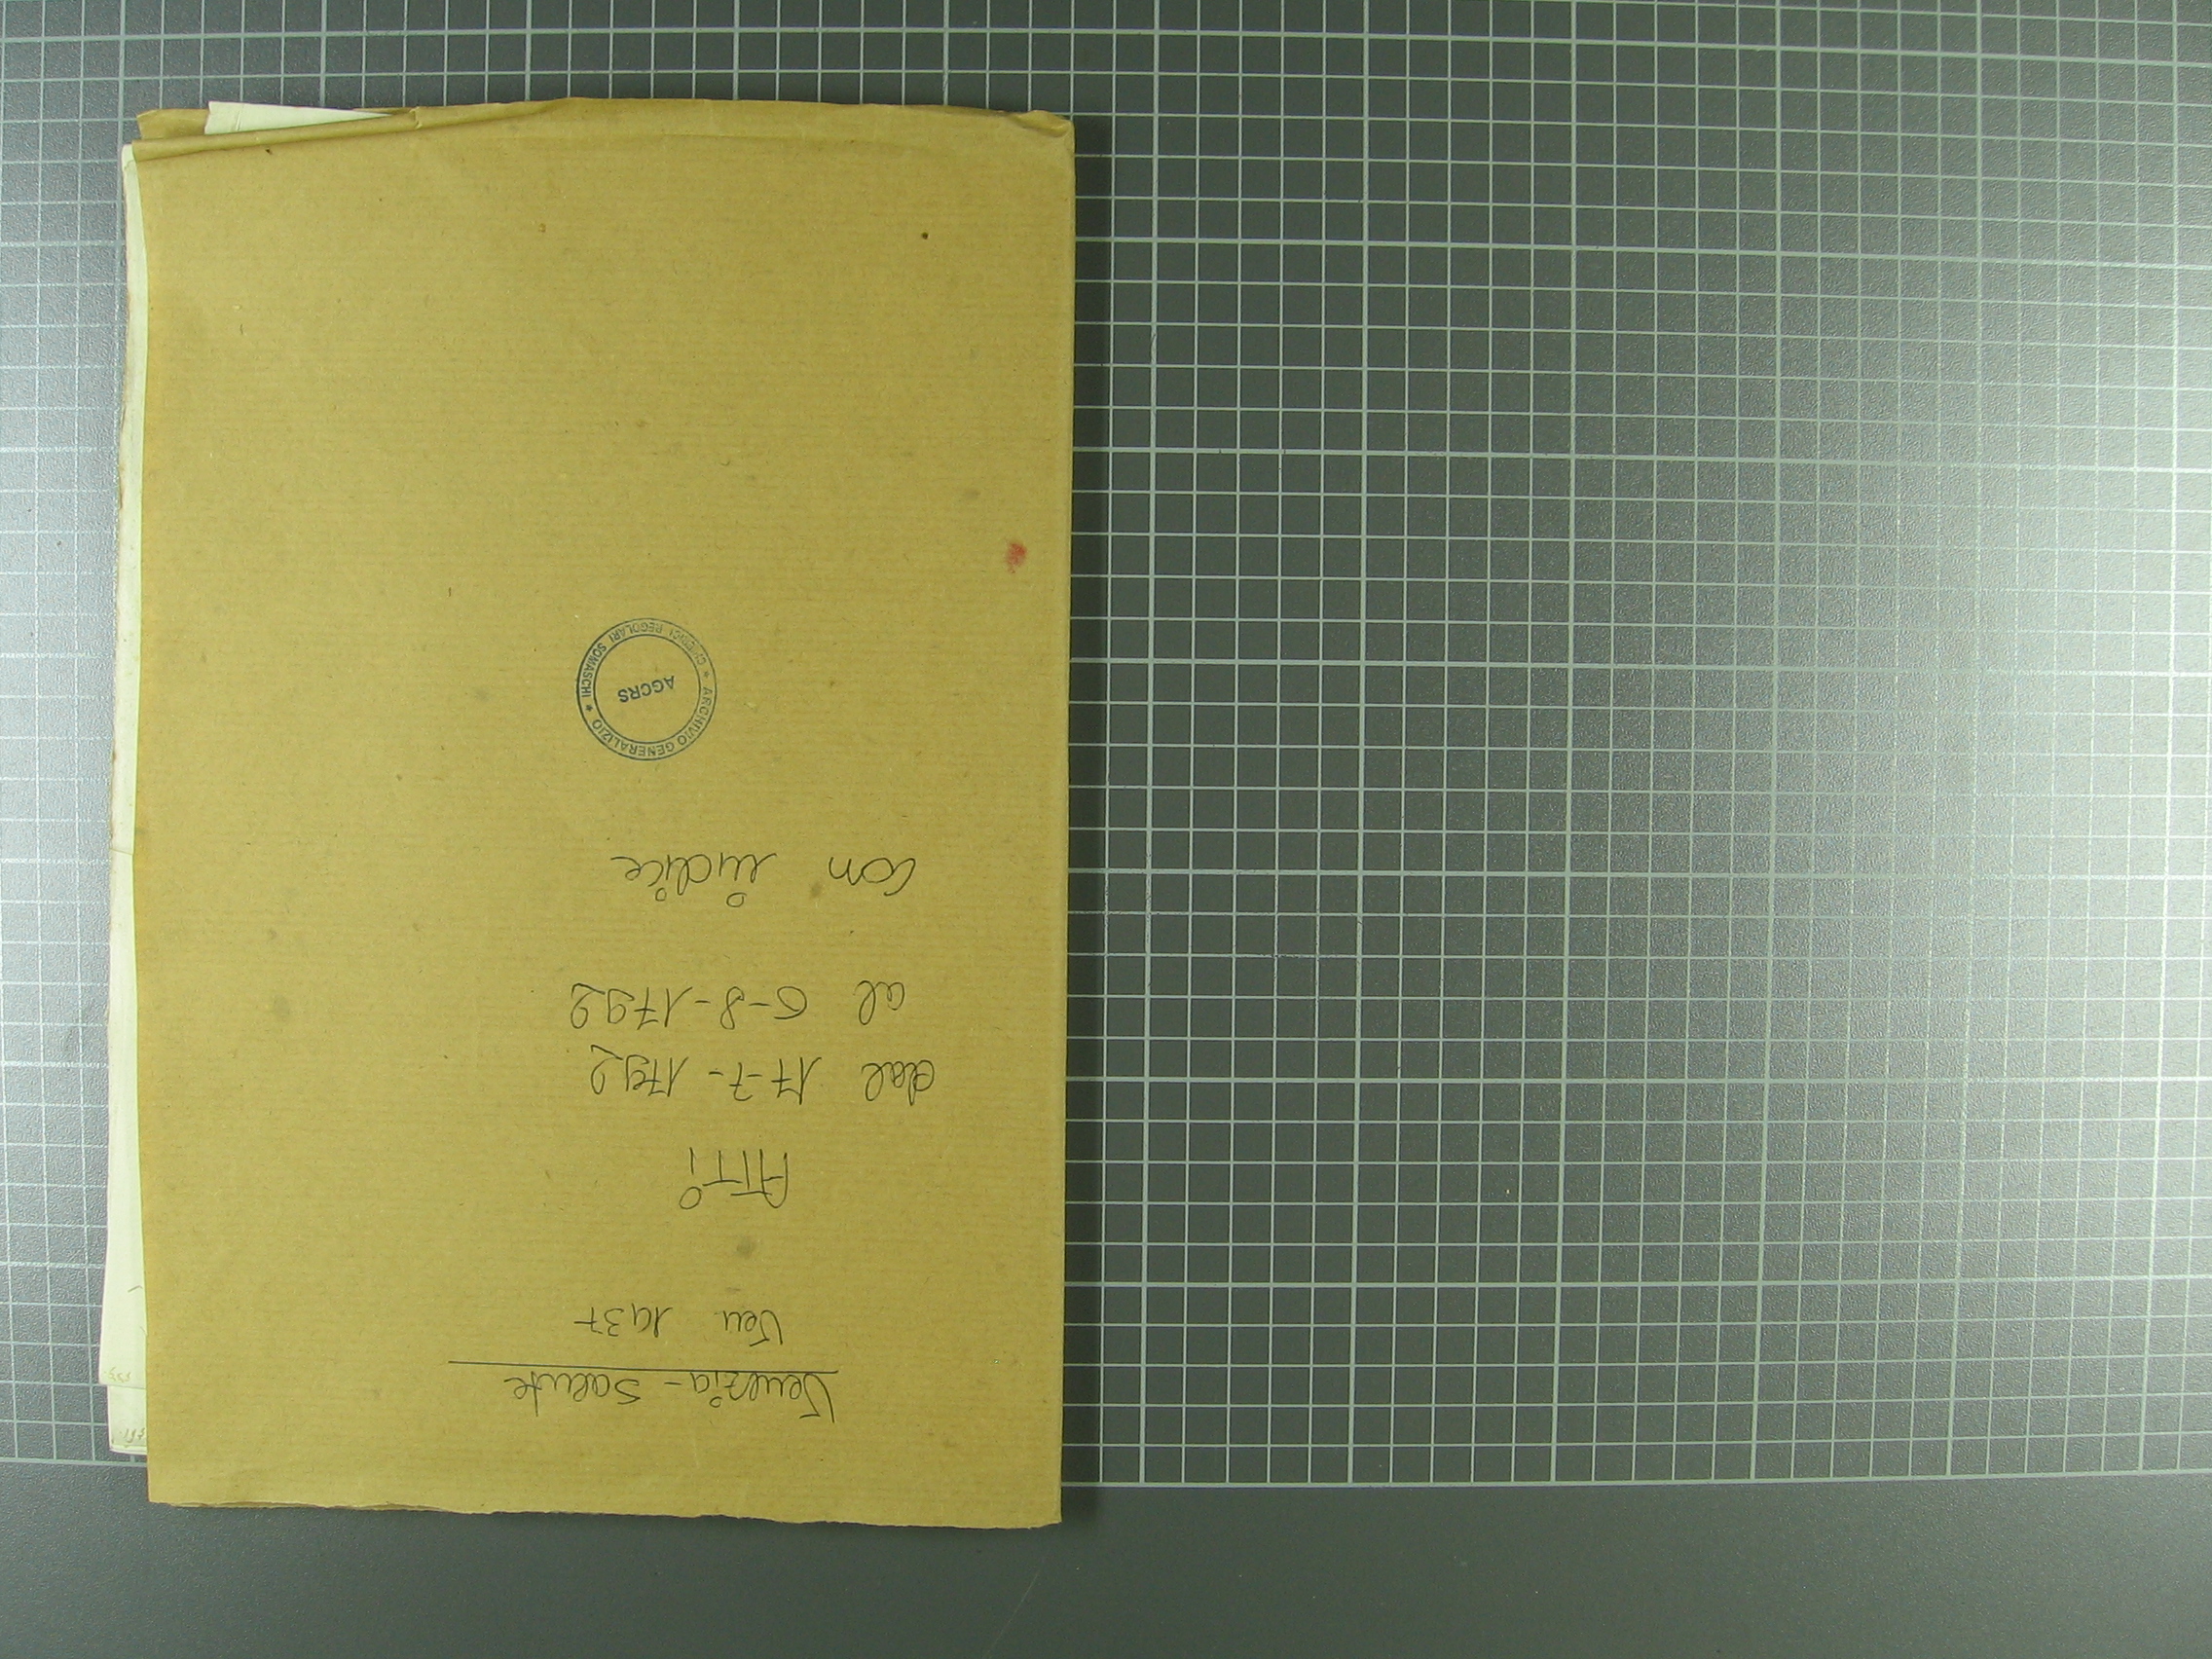 Venezia - Salute
Ven 1937
ATTi
dal 17-7-1792
al 6-8-1792
con indice
* ARCHIVIO GENERALIZIO * CHIERICI REGOLARI SOMASCHI
AGCRS